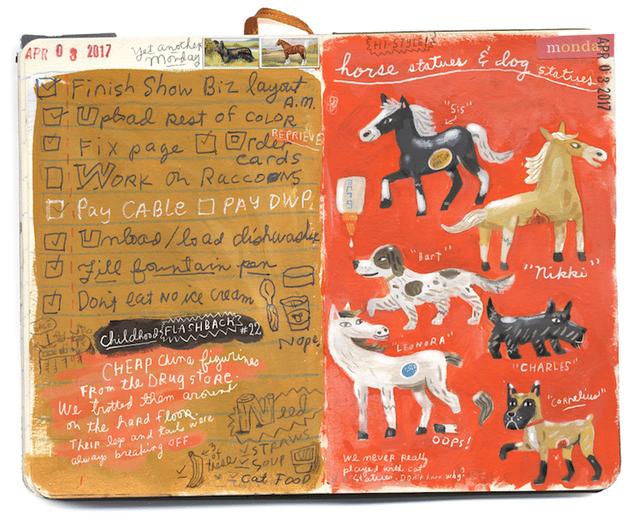 APR 03 2017
Yet another
Monday
Finish Show Biz layout
A.M.
Upload rest of color
REPRIEVE
Fix page Order
cards
Work on Raccoons
Pay CABle PAY DWP
Unload/load dishwasher
Fill fountain pen
Dont eat no ice cream
Nope
childhood FLASHBACK #22
CHEAP China figurines
FROM the DRUG store.
We trotted them around
on the hard floor.
Their legs and tails were
always breaking OFF
Need
3 of these
STRAWS
SOUP
Cat FOOD
HI-STYLE!
monday
APR 03 2017
horse statues & dog statues
"Sis"
"Nikki"
"Bart"
"LEONORA"
"CHARLES"
"Cornelius"
OOPS!
We never really
played with cat
statues. Don't know why?